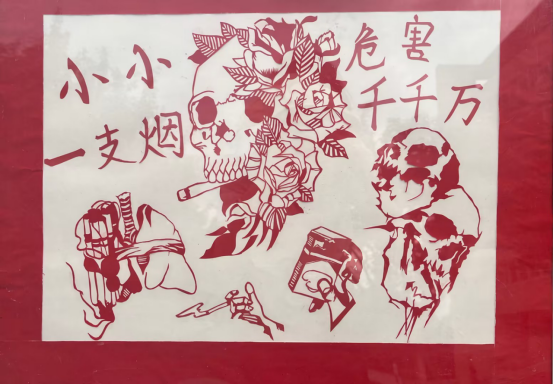 小小
一支烟
危害
千千万